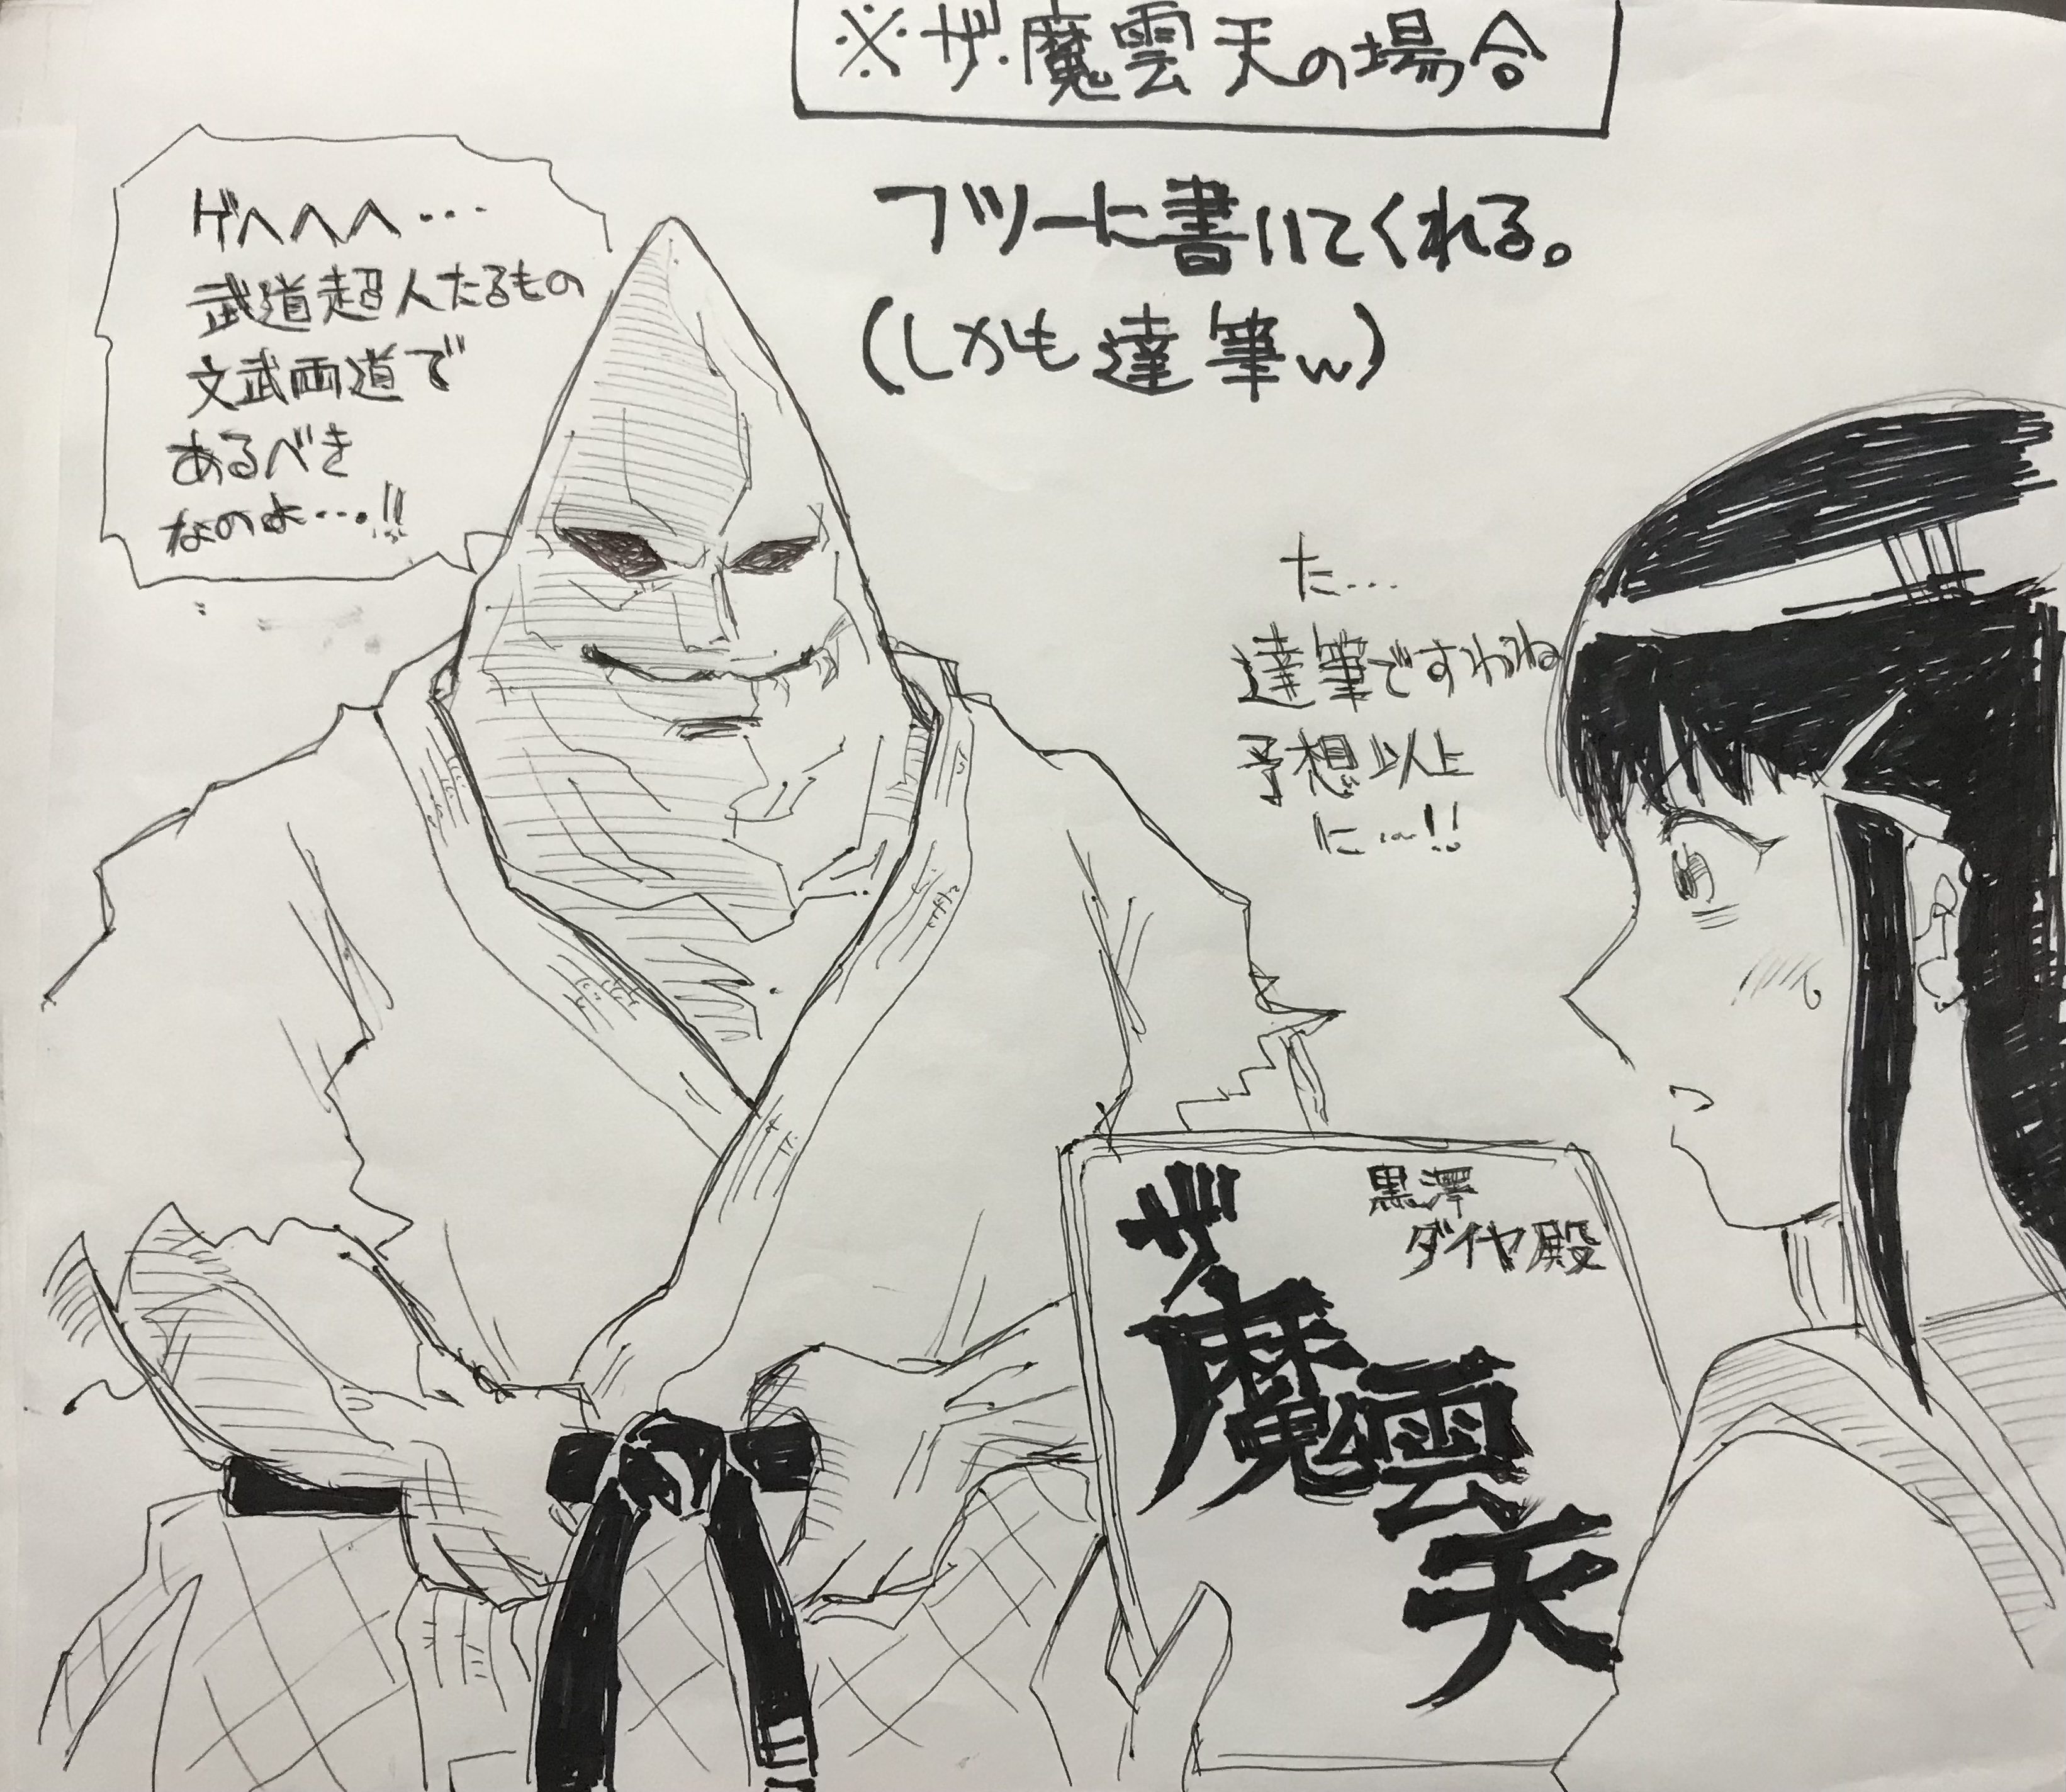 ※ザ・魔雲天の場合
フツーに書いてくれる。
(しかも達筆w)
ゲヘヘヘ…
武道超人たるもの
文武両道で
あるべき
なのよ…!!
た…
達筆ですわね
予想以上
に…!!
黒澤
ダイヤ殿
ザ
魔
雲
天